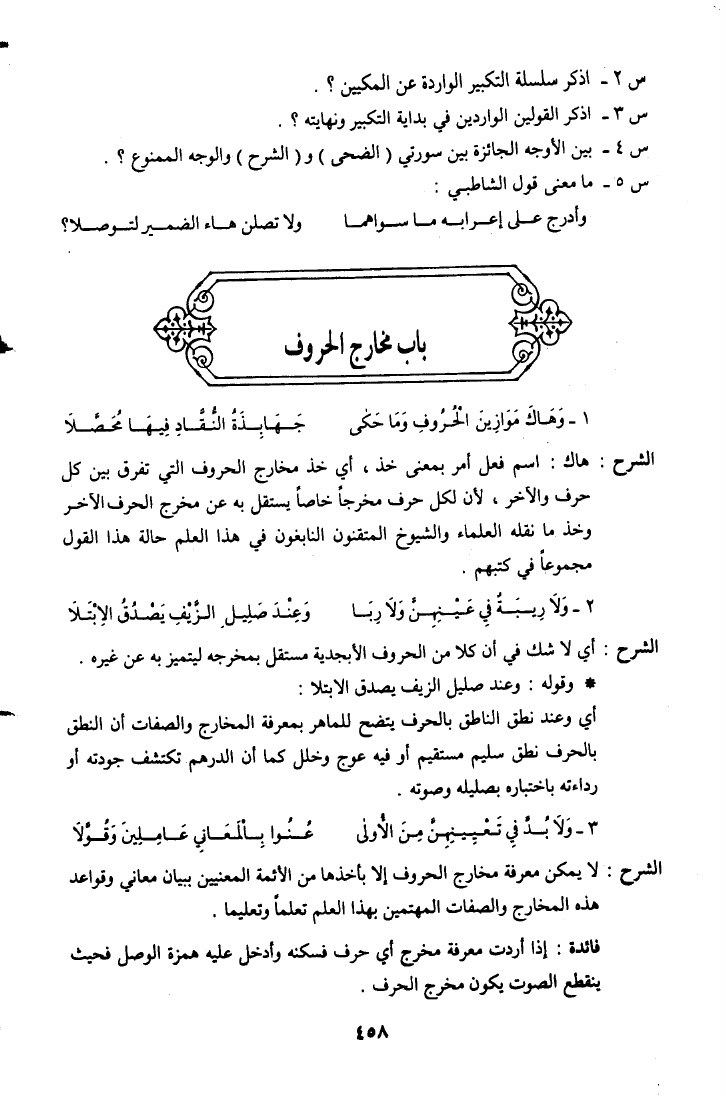 س ٢ - اذكر سلسلة التكبير الواردة عن المكيين ؟ .
س ٣ - اذكر القولين الواردين في بداية التكبير ونهايته ؟ .
س ٤ - بين الأوجه الجائزة بين سورتي ( الضحى ) و ( الشرح ) والوجه الممنوع ؟ .
س ٥ - ما معنى قول الشاطبي :
وأدرج على إعرابه ما سواهما ولا تصلن هاء الضمير لتوصلا؟
باب مخارج الحروف
١ - وَهَاكَ مَوَازِينَ الْحُرُوفِ وَمَا حَكَى جَهَابِذَةُ النُّقَّادِ فِيهَا مُحَصَّلَا
الشرح : هاك : اسم فعل أمر بمعنى خذ ، أي خذ مخارج الحروف التي تفرق بين كل
حرف والآخر ، لأن لكل حرف مخرجاً خاصاً يستقل به عن مخرج الحرف الآخر
وخذ ما نقله العلماء والشيوخ المتقنون النابغون في هذا العلم حالة هذا القول
مجموعاً في كتبهم .
٢ - وَلَا رِيبَةٌ فِي عَيْنِهِنَّ وَلَا رِبَا وَعِنْدَ صَلِيلِ الزَّيْفِ يَصْدُقُ الِابْتِلَا
الشرح : أي لا شك في أن كلا من الحروف الأبجدية مستقل بمخرجه ليتميز به عن غيره .
* وقوله : وعند صليل الزيف يصدق الابتلا :
أي وعند نطق الناطق بالحرف يتضح للماهر بمعرفة المخارج والصفات أن النطق
بالحرف نطق سليم مستقيم أو فيه عوج وخلل كما أن الدرهم تكتشف جودته أو
رداءته باختباره بصليله وصوته .
٣ - وَلَا بُدَّ فِي تَعْيِينِهِنَّ مِنَ الْأُولَى عُنُوا بِالْمَعَانِي عَامِلِينَ وَقُوَّلَا
الشرح : لا يمكن معرفة مخارج الحروف إلا بأخذها من الأئمة المعنيين ببيان معاني وقواعد
هذه المخارج والصفات المهتمين بهذا العلم تعلماً وتعليما .
فائدة : إذا أردت معرفة مخرج أي حرف فسكنه وأدخل عليه همزة الوصل فحيث
ينقطع الصوت يكون مخرج الحرف .
٤٥٨